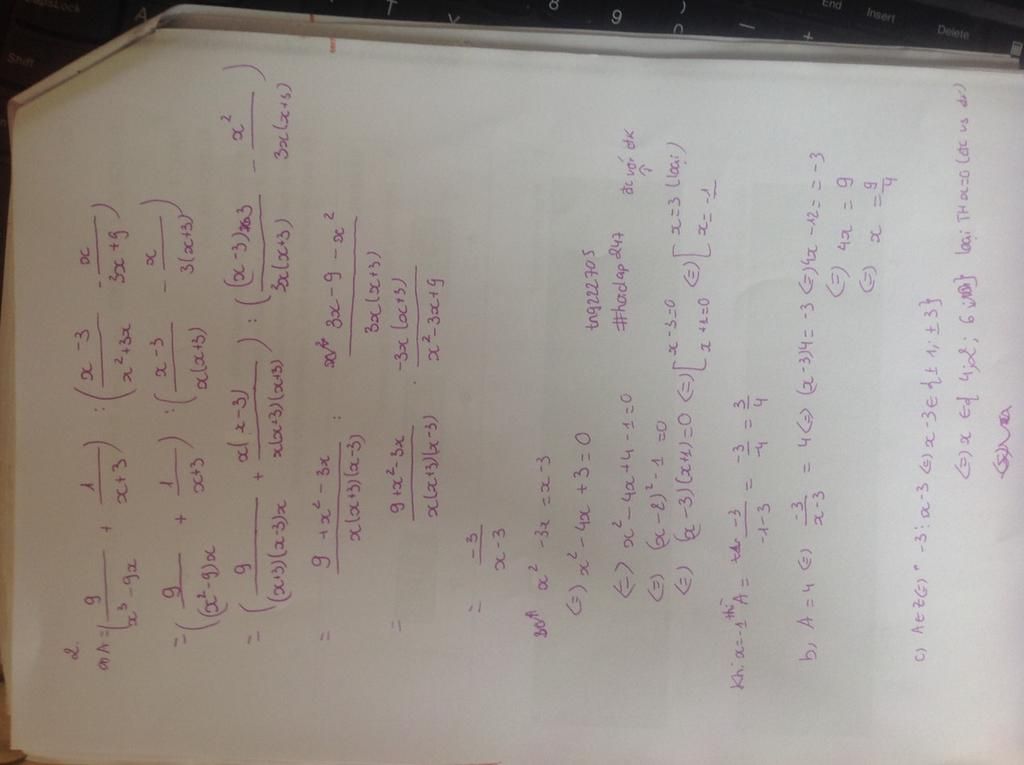 2.
a) A = ( 9/(x³ - 9x) + 1/(x+3) ) : ( (x-3)/(x²+3x) - x/(3x+9) )
= ( 9/((x²-9)x) + 1/(x+3) ) : ( (x-3)/(x(x+3)) - x/(3(x+3)) )
= ( 9/((x+3)(x-3)x) + x(x-3)/(x(x+3)(x+3)) ) : ( (x-3)3/(3x(x+3)) - x²/(3x(x+3)) )
= (9 + x² - 3x)/(x(x+3)(x-3)) : (3x - 9 - x²)/(3x(x+3))
= (9+x²-3x)/(x(x+3)(x-3)) . -3x(x+3)/(x²-3x+9)
= -3/(x-3)
x² -3x = x-3
(=) x² - 4x + 3 = 0
(=) x² - 4x + 4 - 1 = 0
(=) (x-2)² - 1 = 0
(=) (x-3)(x-1) = 0 (=) [ x-3=0 x+1=0 (=) [ x=3 (loại) x=-1
trg222705
#hadap247
đc với đk
Khi x=-1 thì A = -3/(-1-3) = -3/-4 = 3/4
b, A = 4 (=) -3/(x-3) = 4 (=) (x-3)4 = -3 (=) 4x -12 = -3
(=) 4x = 9
(=) x = 9/4
c) A∈Z (=) -3 ⋮ x-3 (=) x-3 ∈ { ±1; ±3}
(=) x ∈ { 4; 2; 6 } loại TH x=0